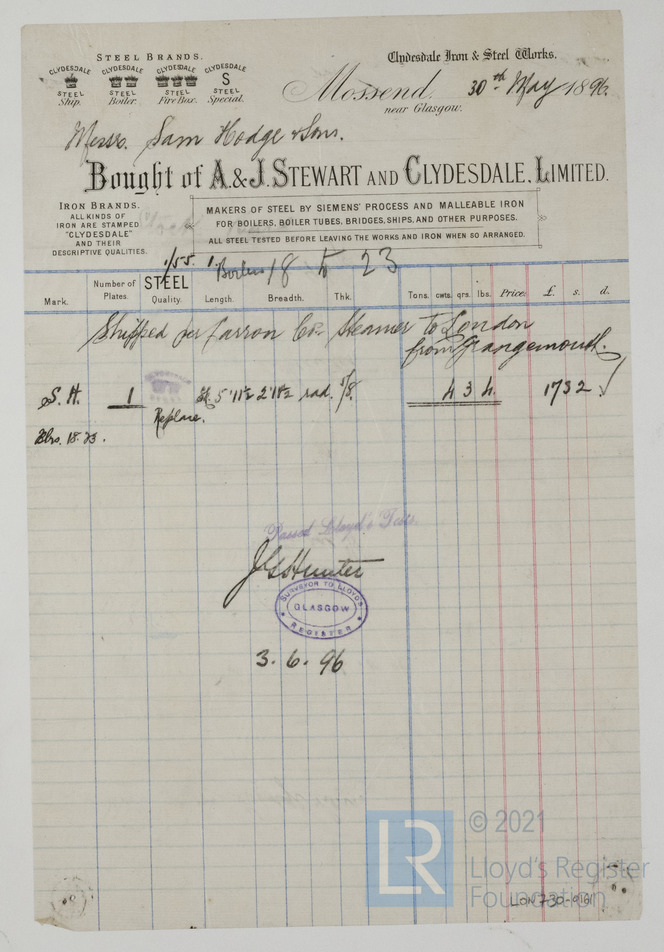 STEEL BRANDS.
CLYDESDALE CLYDESDALE CLYDESDALE CLYDESDALE
S
STEEL STEEL STEEL STEEL
Ship. Boiler. Fire Box. Special.
Clydesdale Iron & Steel Works.
Mossend. 30th May 1896.
near Glasgow.
Messrs. Sam Hodge & Sons.
Bought of A. & J. STEWART AND CLYDESDALE, LIMITED.
IRON BRANDS.
ALL KINDS OF
IRON ARE STAMPED
"CLYDESDALE"
AND THEIR
DESCRIPTIVE QUALITIES.
MAKERS OF STEEL BY SIEMENS' PROCESS AND MALLEABLE IRON
FOR BOILERS, BOILER TUBES, BRIDGES, SHIPS, AND OTHER PURPOSES.
ALL STEEL TESTED BEFORE LEAVING THE WORKS AND IRON WHEN SO ARRANGED.
1/55 Boilers 18 to 23
Mark. Number of Plates. STEEL Quality. Length. Breadth. Thk. Tons. cwts. qrs. lbs. Price. £. s. d.
Shipped per Carron Co. Steamer to London
from Grangemouth.
S. H. 1 5'11½ 2'11½ rad. 7/8. 4 3 4. 1732
Replace.
Blrs. 18.23.
Passed Lloyd's Test.
JG Hunter
SURVEYOR TO LLOYD'S
GLASGOW
REGISTER
3.6.96
LR
© 2021
Lloyd's Register
Foundation
LON 730-0161